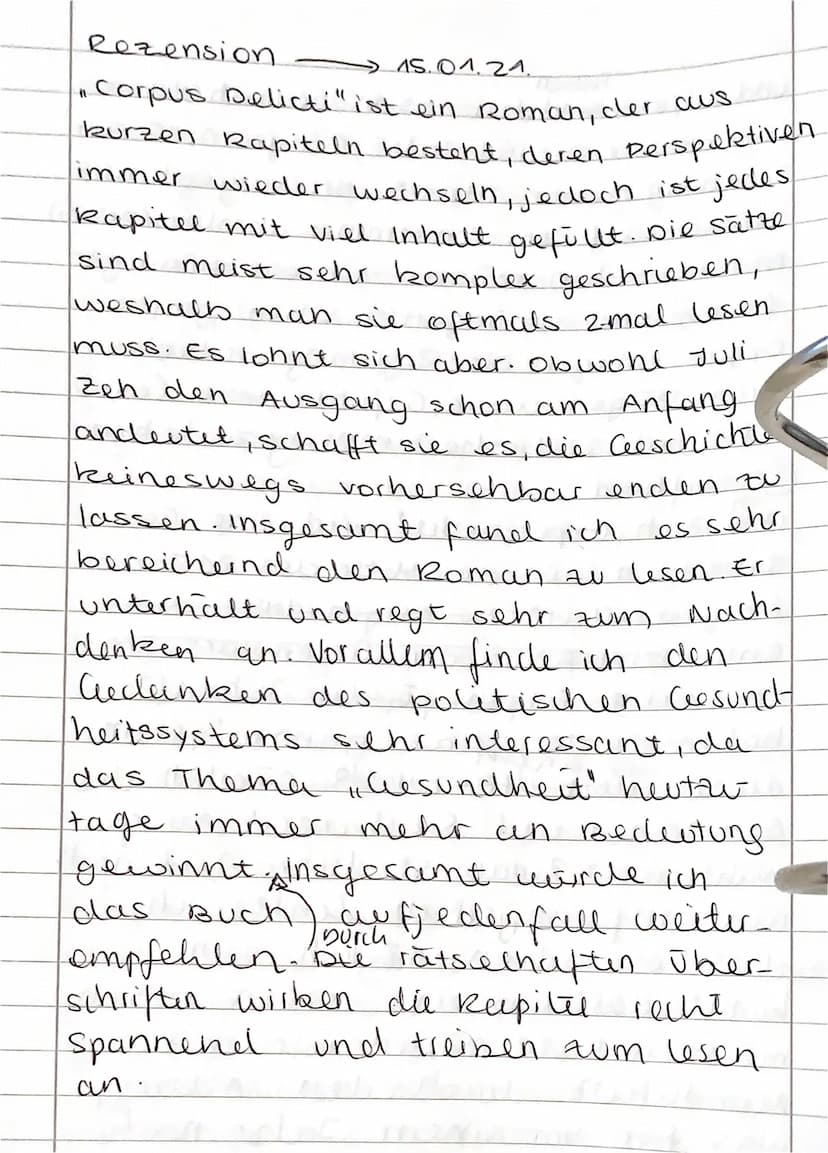 Rezension → 15.01.21.
„Corpus Delicti" ist ein Roman, der aus
kurzen Kapiteln besteht, deren Perspektiven
immer wieder wechseln, jedoch ist jedes
Kapitel mit viel Inhalt gefüllt. Die Sätze
sind meist sehr komplex geschrieben,
weshalb man sie oftmals 2mal lesen
muss. Es lohnt sich aber. Obwohl Juli
Zeh den Ausgang schon am Anfang
andeutet, schafft sie es, die Geschichte
keineswegs vorhersehbar enden zu
lassen. Insgesamt fand ich es sehr
bereichernd den Roman zu lesen. Er
unterhält und regt sehr zum Nach-
denken an. Vor allem finde ich den
Gedanken des politischen Gesund-
heitssystems sehr interessant, da
das Thema „Gesundheit" heutzu-
tage immer mehr an Bedeutung
gewinnt. Insgesamt würde ich
das Buch auf jedenfall weiter-
empfehlen. Durch Die rätselhaften Über-
schriften wirken die Kapitel recht
spannend und treiben zum lesen
an.